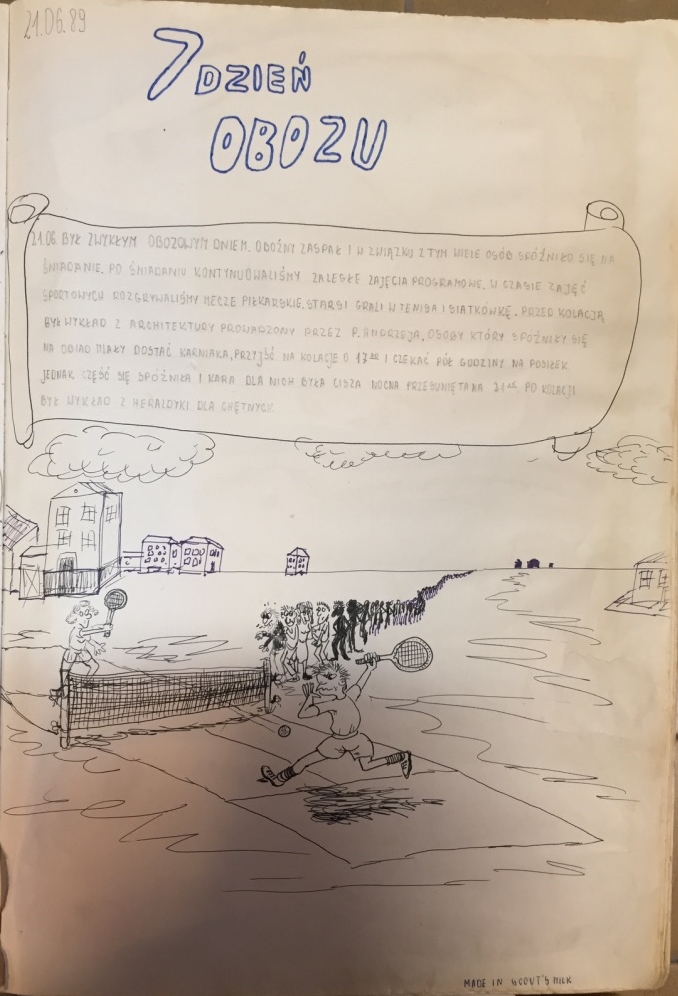 21.06.89
7 DZIEŃ
OBOZU
21.06. BYŁ ZWYKŁYM OBOZOWYM DNIEM. OBOŹNY ZASPAŁ I W ZWIĄZKU Z TYM WIELE OSÓB SPÓŹNIŁO SIĘ NA
ŚNIADANIE. PO ŚNIADANIU KONTYNUOWALIŚMY ZALEGŁE ZAJĘCIA PROGRAMOWE. W CZASIE ZAJĘĆ
SPORTOWYCH ROZGRYWALIŚMY MECZE PIŁKARSKIE. STARSI GRALI W TENISA I SIATKÓWKĘ. PRZED KOLACJĄ
BYŁ WYKŁAD Z ARCHITEKTURY PROWADZONY PRZEZ P. ANDRZEJA, OSOBY KTÓRY SPÓŹNIŁY SIĘ
NA OBIAD MIAŁY DOSTAĆ KARNIAKA, PRZYJŚĆ NA KOLACJE O I CZEKAĆ PÓŁ GODZINY NA POSIŁEK
JEDNAK CZĘŚĆ SIĘ SPÓŹNIŁA I KARA DLA NICH BYŁA CISZA NOCNA PRZESUNIĘTA NA PO KOLACJI
BYŁ WYKŁAD Z HERALDYKI DLA CHĘTNYCH
MADE IN SCOUT'S MILK